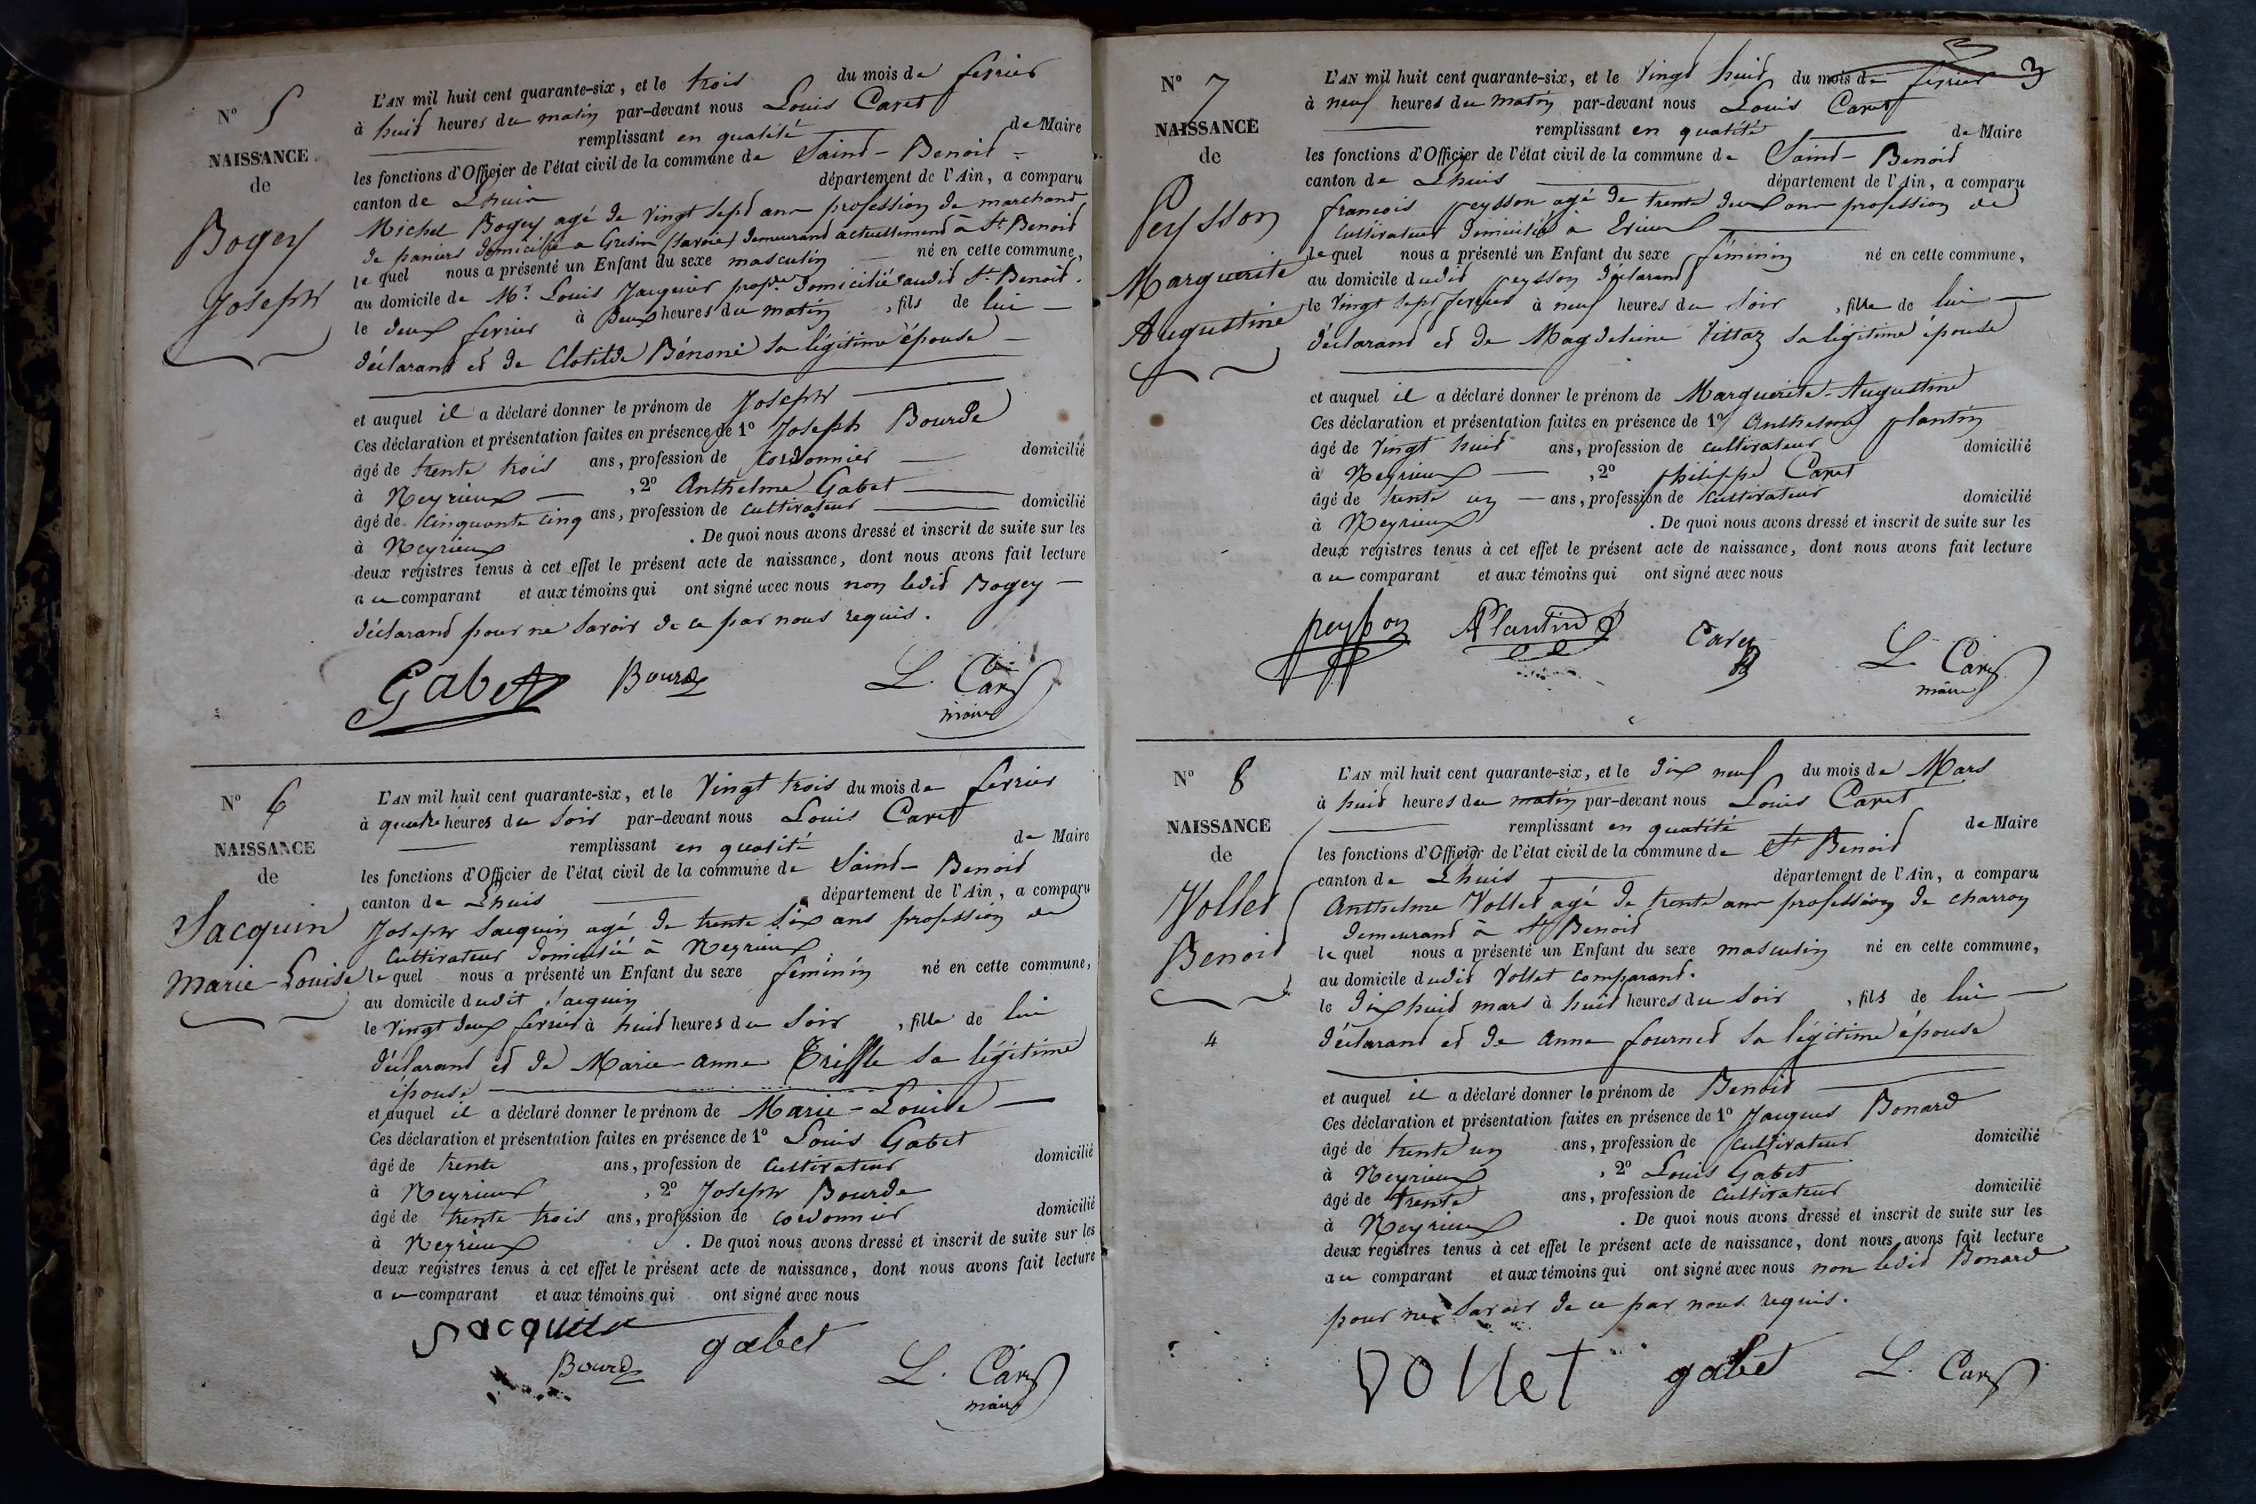 N° 5
NAISSANCE
de
Bogey
Joseph
L'AN mil huit cent quarante-six, et le trois du mois de fevrier
à huit heures du matin par-devant nous Louis Caret
remplissant en qualité de Maire
les fonctions d'Officier de l'état civil de la commune de Saint-Benoit
canton de Lhuis département de l'Ain, a comparu
Michel Bogey agé de vingt sept ans profession de marchand
de paniers domicilié a Gresin (Savoie) demeurant actuellement à St Benoit
lequel nous a présenté un Enfant du sexe masculin né en cette commune,
au domicile de Mr. Louis Jacquier propre domicilié audit St Benoit.
le deux fevrier à deux heures du matin, fils de lui
déclarant et de Clotilde Bénoné sa légitime épouse
et auquel il a déclaré donner le prénom de Joseph
Ces déclaration et présentation faites en présence de 1° Joseph Bourde
âgé de trente trois ans, profession de cordonnier domicilié
à Neyrieux, 2° Anthelme Gabet
âgé de cinquante cinq ans, profession de cultivateur domicilié
à Neyrieux. De quoi nous avons dressé et inscrit de suite sur les
deux registres tenus à cet effet le présent acte de naissance, dont nous avons fait lecture
au comparant et aux témoins qui ont signé avec nous non ledit Bogey
déclarant pour ne savoir de ce par nous requis.
Gabet Bourde L. Caret
maire
N° 6
NAISSANCE
de
Jacquin
Marie-Louise
L'AN mil huit cent quarante-six, et le vingt trois du mois de fevrier
à quatre heures du soir par-devant nous Louis Caret
remplissant en qualité de Maire
les fonctions d'Officier de l'état civil de la commune de Saint-Benoit
canton de Lhuis département de l'Ain, a comparu
Joseph Jacquin agé de trente six ans profession de
cultivateur domicilié à Neyrieux
lequel nous a présenté un Enfant du sexe feminin né en cette commune,
au domicile dudit Jacquin
le vingt deux fevrier à huit heures du soir, fille de lui
déclarant et de Marie-anne Triffle sa légitime
épouse
et auquel il a déclaré donner le prénom de Marie-Louise
Ces déclaration et présentation faites en présence de 1° Louis Gabet
âgé de trente ans, profession de cultivateur domicilié
à Neyrieux, 2° Joseph Bourde
âgé de trente trois ans, profession de cordonnier domicilié
à Neyrieux. De quoi nous avons dressé et inscrit de suite sur les
deux registres tenus à cet effet le présent acte de naissance, dont nous avons fait lecture
au comparant et aux témoins qui ont signé avec nous
Jacquin gabet
Bourde L. Caret
maire
3
N° 7
NAISSANCE
de
Peysson
Marguerite
Augustine
L'AN mil huit cent quarante-six, et le vingt huit du mois de fevrier
à neuf heures du matin par-devant nous Louis Caret
remplissant en qualité de Maire
les fonctions d'Officier de l'état civil de la commune de Saint-Benoit
canton de Lhuis département de l'Ain, a comparu
francois peysson agé de trente deux ans profession de
cultivateur domicilié à Evieux
lequel nous a présenté un Enfant du sexe féminin né en cette commune,
au domicile dudit peysson déclarant
le vingt sept fevrier à neuf heures du soir, fille de lui
déclarant et de Magdeleine Vettaz sa légitime épouse
et auquel il a déclaré donner le prénom de Marguerite-Augustine
Ces déclaration et présentation faites en présence de 1° Anthelme plantin
âgé de vingt huit ans, profession de cultivateur domicilié
à Neyrieux, 2° philippe Caret
âgé de trente un ans, profession de cultivateur domicilié
à Neyrieux. De quoi nous avons dressé et inscrit de suite sur les
deux registres tenus à cet effet le présent acte de naissance, dont nous avons fait lecture
au comparant et aux témoins qui ont signé avec nous
peysson Plantin Caret L. Caret
maire
N° 8
NAISSANCE
de
Vollet
Benoit
4
L'AN mil huit cent quarante-six, et le dix neuf du mois de Mars
à huit heures du matin par-devant nous Louis Caret
remplissant en qualité de Maire
les fonctions d'Officier de l'état civil de la commune de St Benoit
canton de Lhuis département de l'Ain, a comparu
Anthelme Vollet agé de trente ans profession de charron
demeurant à St Benoit
lequel nous a présenté un Enfant du sexe masculin né en cette commune,
au domicile dudit Vollet comparant.
le dix huit mars à huit heures du soir, fils de lui
déclarant et de anne fournet sa légitime épouse
et auquel il a déclaré donner le prénom de Benoit
Ces déclaration et présentation faites en présence de 1° Jacques Bonard
âgé de trente un ans, profession de cultivateur domicilié
à Neyrieux, 2° Louis Gabet
âgé de trente ans, profession de cultivateur domicilié
à Neyrieux. De quoi nous avons dressé et inscrit de suite sur les
deux registres tenus à cet effet le présent acte de naissance, dont nous avons fait lecture
au comparant et aux témoins qui ont signé avec nous non ledit Bonard
pour ne savoir de ce par nous requis.
VOLLET gabet L. Caret